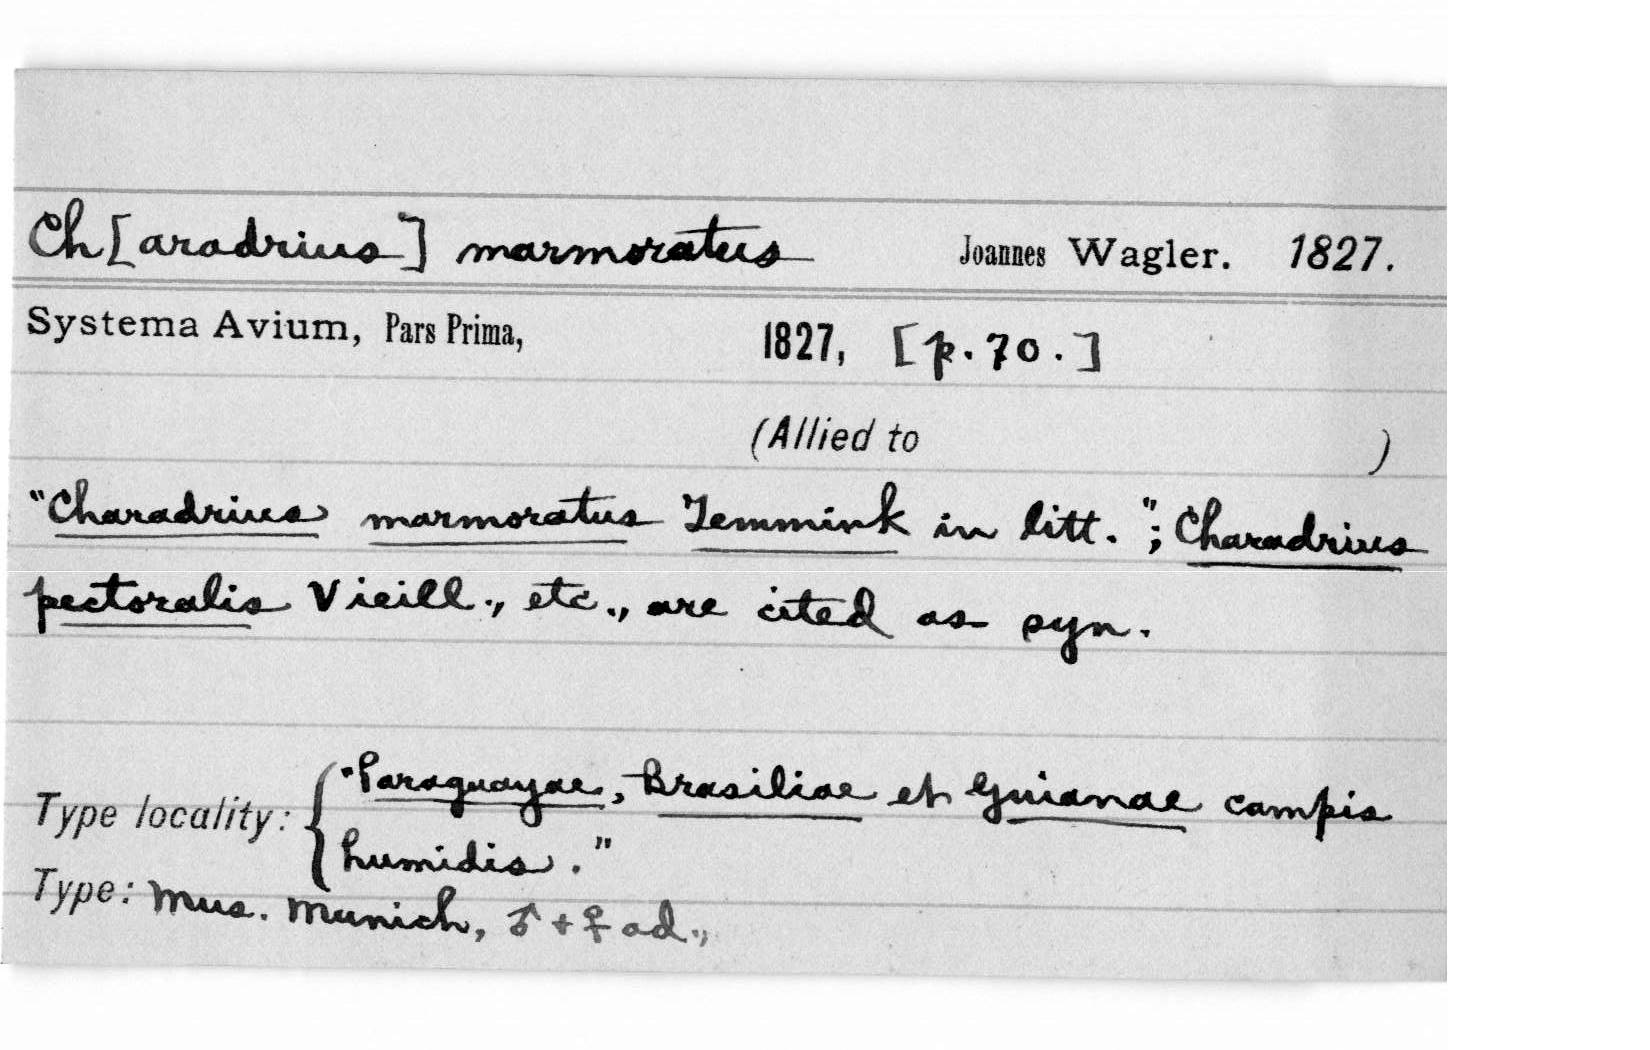 Ch[aradrius] marmoratus Joannes Wagler. 1827.
Systema Avium, Pars Prima, 1827, [p. 70.]
(Allied to )
"Charadrius marmoratus Temmink in litt."; Charadrius
pectoralis Vieill., etc., are cited as syn.
Type locality: "Paraguayae, Brasiliae et Guianae campis
humidis."
Type: Mus. Munich, ♂ + ♀ ad.,